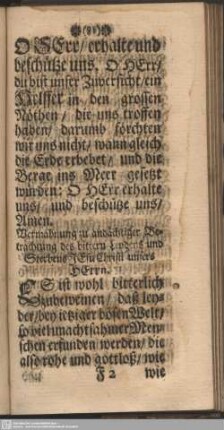 O HErr/ erhalte und
beschütze uns. O HErr/
du bist unser Zuversicht/ ein
Helffer in den grossen
Nöthen/ die uns troffen
haben/ darumb förchten
wir uns nicht/ wann gleich
die Erde erbebet/ und die
Berge ins Meer gesetzt
würden: O HErr erhalte
uns/ und beschütze uns/
Amen.
Vermahnung zu andächtiger Be-
trachtung des bittern Leydens und
Sterbens JEsu Christi unsers
HErrn.
ES ist wohl bitterlich
zubeweinen/ daß ley-
der/ bey ietziger bösen Welt/
so viel unachtsahmer Men-
schen erfunden werden/ die
also rohe und gottloß/ wie
F 2 wie